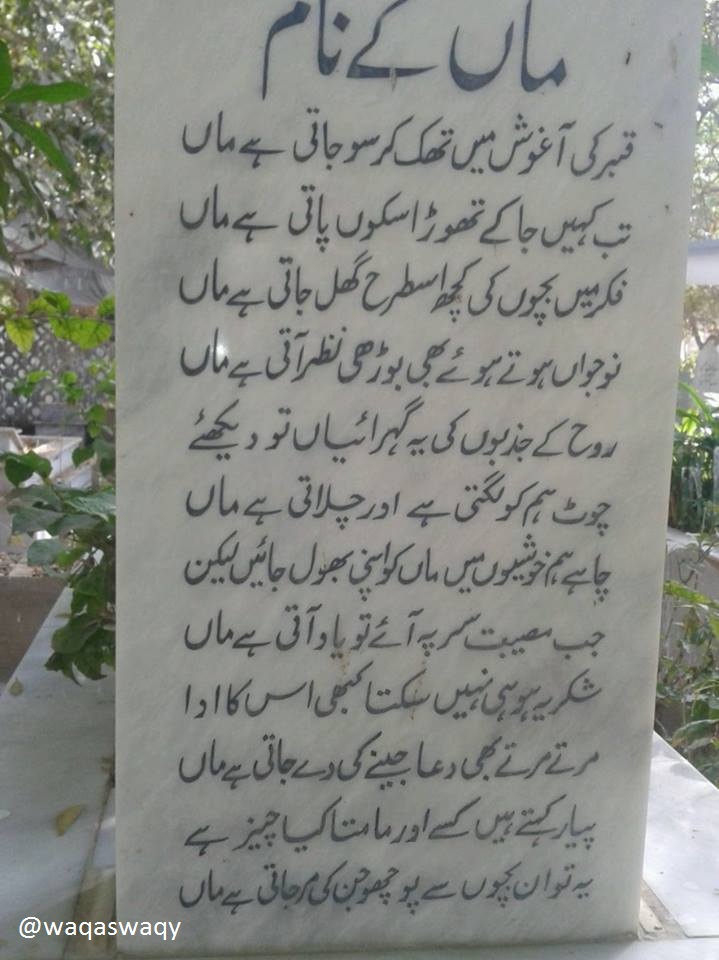 ماں کے نام
قبر کی آغوش میں تھک کر سو جاتی ہے ماں
تب کہیں جا کے تھوڑا سکوں پاتی ہے ماں
فکر میں بچوں کی کچھ اسطرح گھل جاتی ہے ماں
نوجواں ہوتے ہوئے بھی بوڑھی نظر آتی ہے ماں
روح کے جذبوں کی یہ گہرائیاں تو دیکھئے
چوٹ ہم کو لگتی ہے اور چلاتی ہے ماں
چاہے ہم خوشیوں میں ماں کو اپنی بھول جائیں لیکن
جب مصیبت سر پہ آئے تو یاد آتی ہے ماں
شکریہ ہو ہی نہیں سکتا کبھی اس کا ادا
مرتے مرتے بھی دعا جینے کی دے جاتی ہے ماں
پیار کہتے ہیں کسے اور مامتا کیا چیز ہے
یہ تو ان بچوں سے پوچھو جن کی مر جاتی ہے ماں
@waqaswaqy